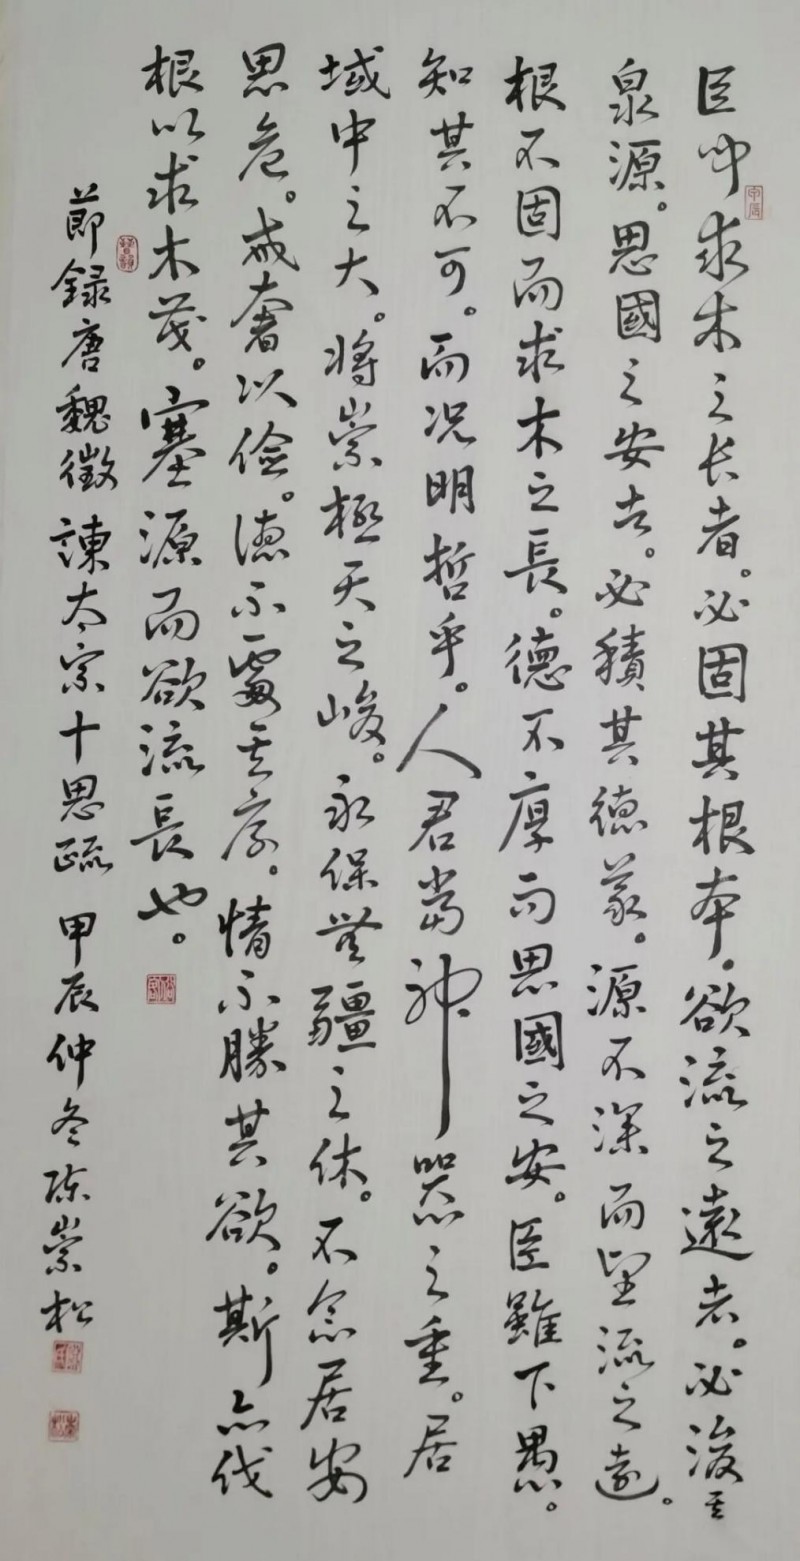 臣聞求木之长者。必固其根本。欲流之遠者。必浚其
泉源。思國之安者。必積其德義。源不深而望流之遠。
根不固而求木之長。德不厚而思國之安。臣雖下愚。
知其不可。而况明哲乎。人君當神器之重。居
域中之大。将崇極天之峻。永保無疆之休。不念居安
思危。戒奢以儉。德不處其厚。情不勝其欲。斯亦伐
根以求木茂。塞源而欲流長也。
節録唐魏徵諫太宗十思疏 甲辰仲冬陈崇松
甲辰